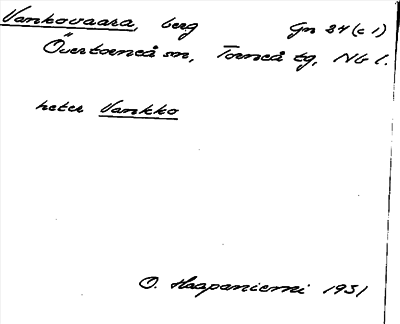 Vankovaara, berg Gn 24 (c 1)
Övertorneå sn, Torneå tg, NB l.
heter Vankko
O. Haapaniemi 1931